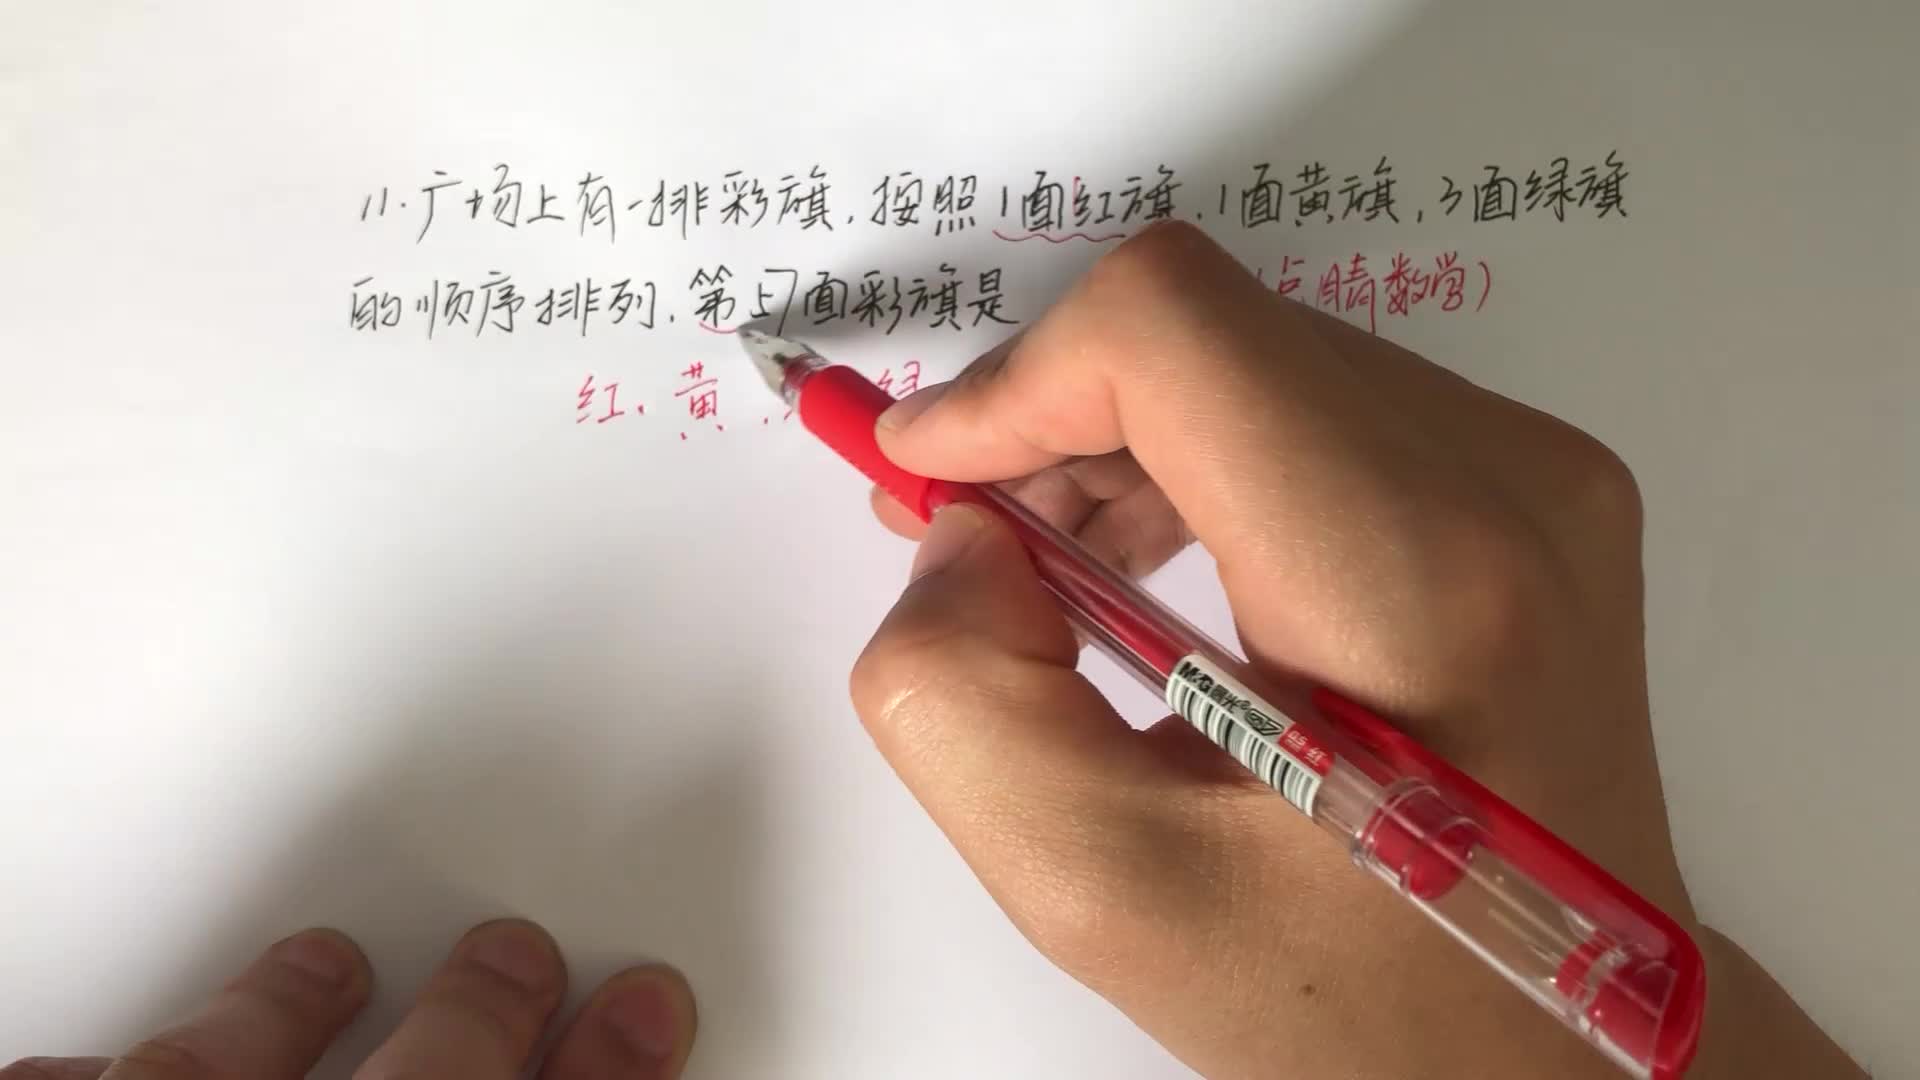 11.广场上有一排彩旗,按照1面红旗,1面黄旗,3面绿旗
的顺序排列,第57面彩旗是 点睛数学)
红、黄、 绿
M&G晨光 0.5 红